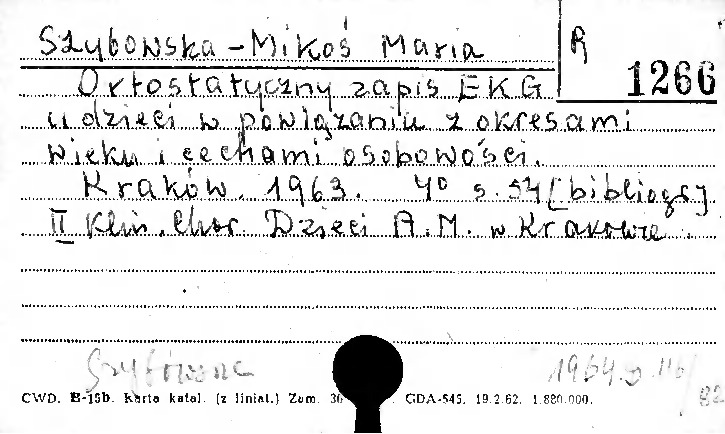 Szybowska-Mikoś Maria R
1266
Ortostatyczny zapis EKG
u dzieci w powiązaniu z okresami
wieku i cechami osobowości.
Kraków. 1963. 4° s. 54 [bibliogr].
II Klin. Chor. Dzieci A.M. w Krakowie.
1964
CWD. B-15b. Karta katal. (z liniat.) Zam. GDA-545. 19.2.62. 1.880.000.